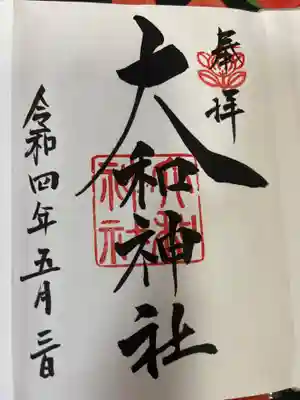 奉拝
大和神社
令和四年五月三日
大和
神社